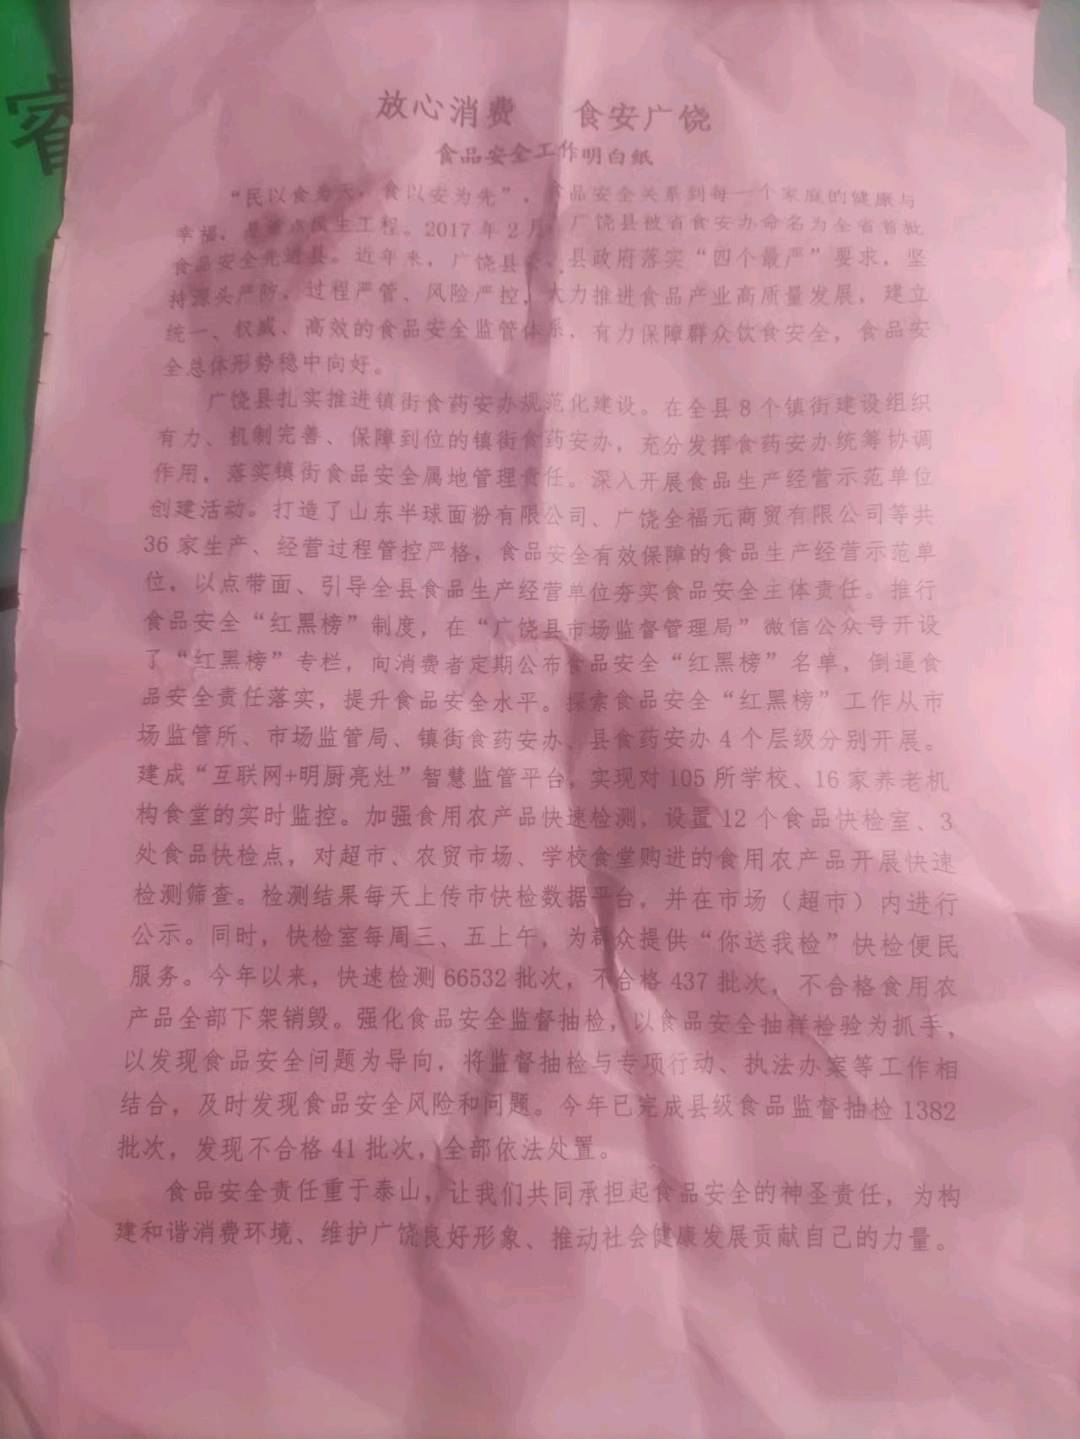 睿
放心消费 食安广饶
食品安全工作明白纸
“民以食为天，食以安为先”，食品安全关系到每一个家庭的健康与
幸福，是重点民生工程。2017年2月，广饶县被省食安办命名为全省首批
食品安全先进县。近年来，广饶县委、县政府落实“四个最严”要求，坚
持源头严防、过程严管、风险严控，大力推进食品产业高质量发展，建立
统一、权威、高效的食品安全监管体系，有力保障群众饮食安全，食品安
全总体形势稳中向好。
广饶县扎实推进镇街食药安办规范化建设。在全县8个镇街建设组织
有力、机制完善、保障到位的镇街食药安办，充分发挥食药安办统筹协调
作用，落实镇街食品安全属地管理责任。深入开展食品生产经营示范单位
创建活动。打造了山东半球面粉有限公司、广饶全福元商贸有限公司等共
36家生产、经营过程管控严格，食品安全有效保障的食品生产经营示范单
位，以点带面、引导全县食品生产经营单位夯实食品安全主体责任。推行
食品安全“红黑榜”制度，在“广饶县市场监督管理局”微信公众号开设
了“红黑榜”专栏，向消费者定期公布食品安全“红黑榜”名单，倒逼食
品安全责任落实，提升食品安全水平。探索食品安全“红黑榜”工作从市
场监管所、市场监管局、镇街食药安办、县食药安办4个层级分别开展。
建成“互联网+明厨亮灶”智慧监管平台，实现对105所学校、16家养老机
构食堂的实时监控。加强食用农产品快速检测，设置12个食品快检室、3
处食品快检点，对超市、农贸市场、学校食堂购进的食用农产品开展快速
检测筛查。检测结果每天上传市快检数据平台，并在市场（超市）内进行
公示。同时，快检室每周三、五上午，为群众提供“你送我检”快检便民
服务。今年以来，快速检测66532批次，不合格437批次，不合格食用农
产品全部下架销毁。强化食品安全监督抽检，以食品安全抽样检验为抓手，
以发现食品安全问题为导向，将监督抽检与专项行动、执法办案等工作相
结合，及时发现食品安全风险和问题。今年已完成县级食品监督抽检1382
批次，发现不合格41批次，全部依法处置。
食品安全责任重于泰山，让我们共同承担起食品安全的神圣责任，为构
建和谐消费环境、维护广饶良好形象、推动社会健康发展贡献自己的力量。